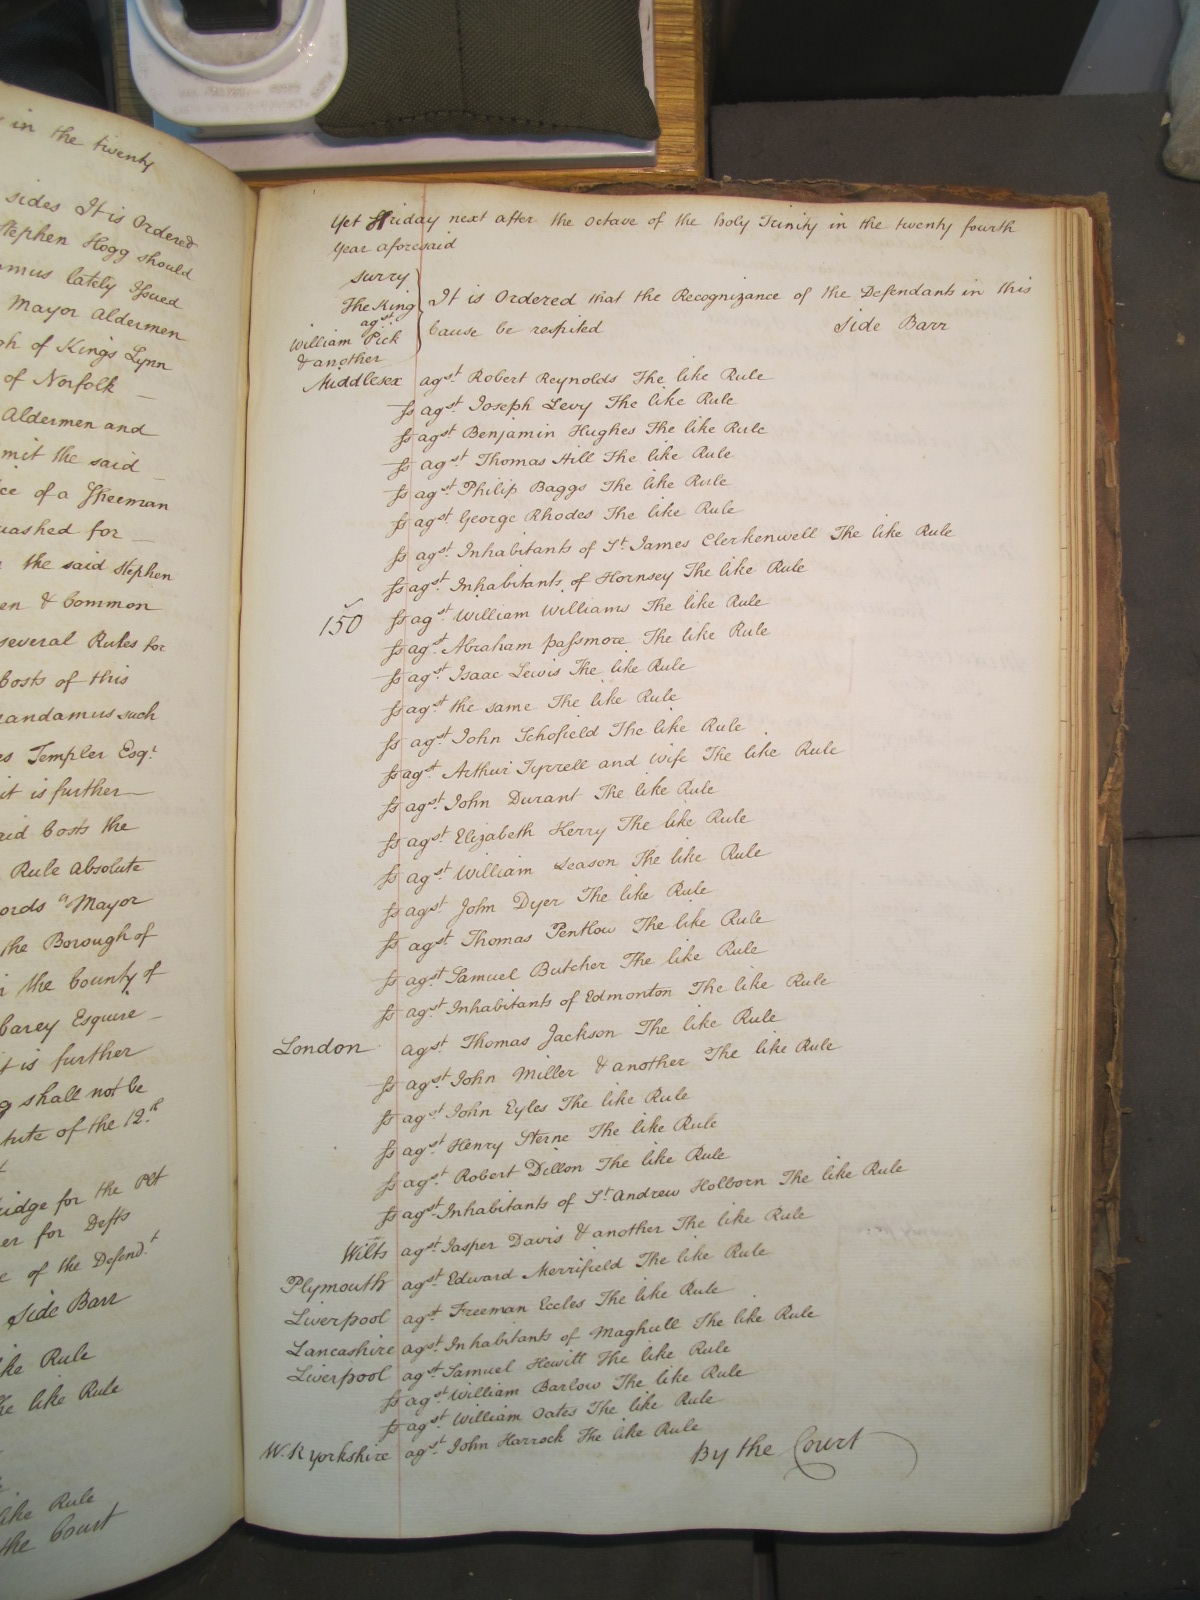 in the twenty
sides It is Ordered
Stephen Hogg should
lately Issued
Mayor Aldermen
of Kings Lynn
of Norfolk
Aldermen and
mit the said
of a ffreeman
quashed for
the said Stephen
& Common
several Rules for
Costs of this
mandamus such
Templer Esqr.
it is further
said Costs the
Rule absolute
Mayor
the Borough of
the County of
Carey Esquire
it is further
shall not be
of the 12.th
for the Plt
for Defts
of the Defend.t
Side Barr
like Rule
The like Rule
like Rule
the Court
Yet ffriday next after the Octave of the holy Trinity in the twenty fourth
Year aforesaid
Surry
The King
agst.
William Pick
& another
It is Ordered that the Recognizance of the Defendants in this
Cause be respited Side Barr
Middlesex agst. Robert Reynolds The like Rule
ss agst. Joseph Levy The like Rule
ss agst Benjamin Hughes The like Rule
ss agst. Thomas Hill The like Rule
ss agst. Philip Baggs The like Rule
ss agst. George Rhodes The like Rule
ss agst. Inhabitants of St. James Clerkenwell The like Rule
ss agst. Inhabitants of Hornsey The like Rule
150 ss agst. William Williams The like Rule
ss agst. Abraham passmore The like Rule
ss agst. Isaac Lewis The like Rule
ss agst the same The like Rule
ss agst. John Schofield The like Rule
ss agst. Arthur Tyrrell and Wife The like Rule
ss agst. John Durant The like Rule
ss agst. Elizabeth Kerry The like Rule
ss agst. William Season The like Rule
ss agst. John Dyer The like Rule
ss agst Thomas Pentlow The like Rule
ss agst. Samuel Butcher The like Rule
ss agst. Inhabitants of Edmonton The like Rule
London agst Thomas Jackson The like Rule
ss agst. John Miller & another The like Rule
ss agst. John Eyles The like Rule
ss agst. Henry Sterne The like Rule
ss agst. Robert Dillon The like Rule
ss agst. Inhabitants of St. Andrew Holborn The like Rule
Wilts agst. Jasper Davis & another The like Rule
Plymouth agst. Edward Merrifield The like Rule
Liverpool agst Freeman Eccles The like Rule
Lancashire agst. Inhabitants of Maghull The like Rule
Liverpool agst Samuel Hewitt The like Rule
ss agst William Barlow The like Rule
ss agst William Oates The like Rule
W. R Yorkshire agst. John Harrock The like Rule
By the Court